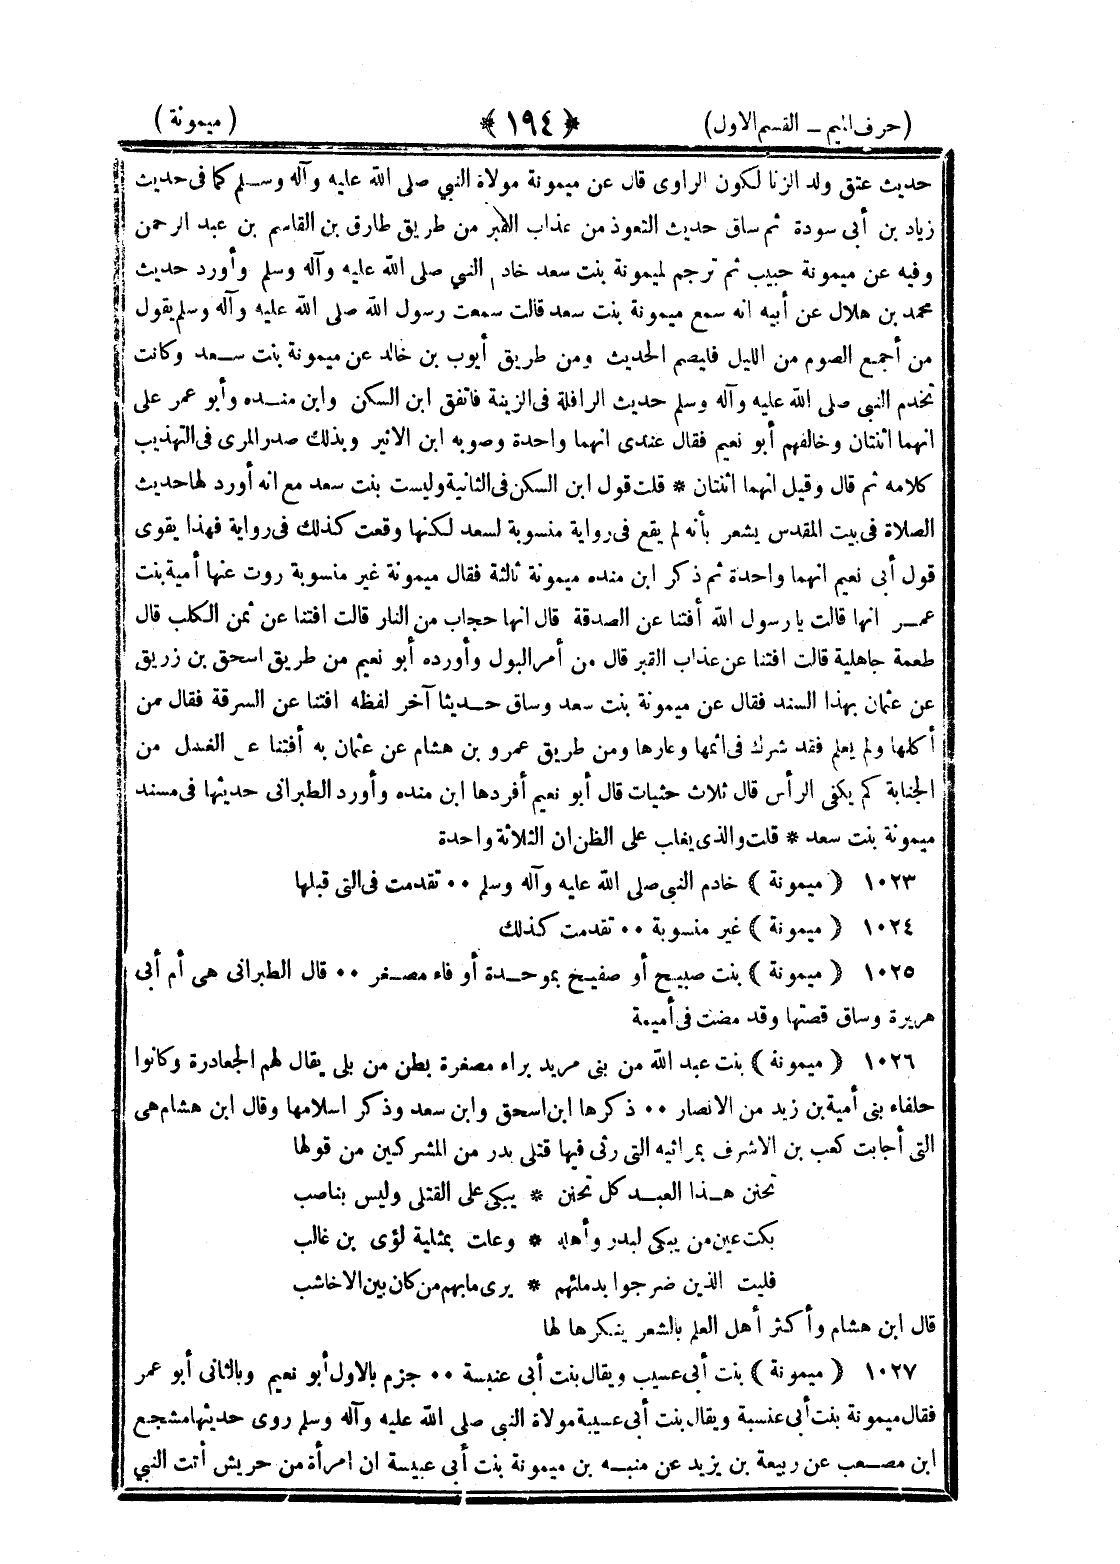 (حرف الميم ــ القسم الاول) ﴿١٩٤﴾ (ميمونة)
حديث عتق ولد الزنا لكون الراوى قال عن ميمونة مولاة النبي صلى الله عليه وآله وسلم كما فى حديث
زياد بن أبى سودة ثم ساق حديث التعوذ من عذاب القبر من طريق طارق بن القاسم بن عبد الرحمن
وفيه عن ميمونة حبيب ثم ترجم لميمونة بنت سعد خادم النبي صلى الله عليه وآله وسلم وأورد حديث
محمد بن هلال عن أبيه انه سمع ميمونة بنت سعد قالت سمعت رسول الله صلى الله عليه وآله وسلم يقول
من أجمع الصوم من الليل فليصم الحديث ومن طريق أيوب بن خالد عن ميمونة بنت سعد وكانت
تخدم النبى صلى الله عليه وآله وسلم حديث الرافلة فى الزينة فاتفق ابن السكن وابن منده وأبو عمر على
انهما اثنتان وخالفهم أبو نعيم فقال عندى انهما واحدة وصوبه ابن الاثير وبذلك صدر المزى فى التهذيب
كلامه ثم قال وقيل انهما اثنتان * قلت قول ابن السكن فى الثانية وليست بنت سعد مع انه أورد لها حديث
الصلاة فى بيت المقدس يشعر بأنه لم يقع فى رواية منسوبة لسعد لكنها وقعت كذلك فى رواية فهذا يقوى
قول أبى نعيم انهما واحدة ثم ذكر ابن منده ميمونة ثالثة فقال ميمونة غير منسوبة روت عنها أمية بنت
عمر انها قالت يا رسول الله أفتنا عن الصدقة قال انها حجاب من النار قالت افتنا عن ثمن الكلب قال
طعمة جاهلية قالت افتنا عن عذاب القبر قال من أمر البول وأورده أبو نعيم من طريق اسحق بن زريق
عن عثمان بهذا السند فقال عن ميمونة بنت سعد وساق حديثا آخر لفظه افتنا عن السرقة فقال من
أكلها ولم يعلم فقد شرك فى اثمها وعارها ومن طريق عمرو بن هشام عن عثمان به أفتنا عن الغسل من
الجنابة كم يكفى الرأس قال ثلاث حثيات قال أبو نعيم أفردها ابن منده وأورد الطبرانى حديثها فى مسند
ميمونة بنت سعد * قلت والذى يغلب على الظن ان الثلاثة واحدة
١٠٢٣ ﴿ ميمونة ﴾ خادم النبى صلى الله عليه وآله وسلم ٠٠ تقدمت فى التى قبلها
١٠٢٤ ﴿ ميمونة ﴾ غير منسوبة ٠٠ تقدمت كذلك
١٠٢٥ ﴿ ميمونة ﴾ بنت صبيح أو صفيح بموحدة أو فاء مصغر ٠٠ قال الطبرانى هى أم أبى
هريرة وساق قصتها وقد مضت فى أميمة
١٠٢٦ ﴿ ميمونة ﴾ بنت عبد الله من بنى مريد براء مصغرة بطن من بلى يقال لهم الجعادرة وكانوا
حلفاء بنى أمية بن زيد من الانصار ٠٠ ذكرها ابن اسحق وابن سعد وذكر اسلامها وقال ابن هشام هى
التى أجابت كعب بن الاشرف بمراثيه التى رثى فيها قتلى بدر من المشركين من قولها
تحنن هذا العبد كل تحنن * يبكى على القتلى وليس بناصب
بكت عين من يبكى لبدر وأهله * وعلت بمثلية لؤى بن غالب
فليت الذين ضرجوا بدمائهم * يرى ما بهم من كان بين الاخاشب
قال ابن هشام وأكثر أهل العلم بالشعر ينكرها لها
١٠٢٧ ﴿ ميمونة ﴾ بنت أبى عسيب ويقال بنت أبى عنبسة ٠٠ جزم بالاول أبو نعيم وبالثانى أبو عمر
فقال ميمونة بنت أبى عنبسة ويقال بنت أبى عسيبة مولاة النبى صلى الله عليه وآله وسلم روى حديثها مشجع
ابن مصعب عن ربيعة بن يزيد عن منبه بن ميمونة بنت أبى عبيسة ان امرأة من حريش أتت النبي